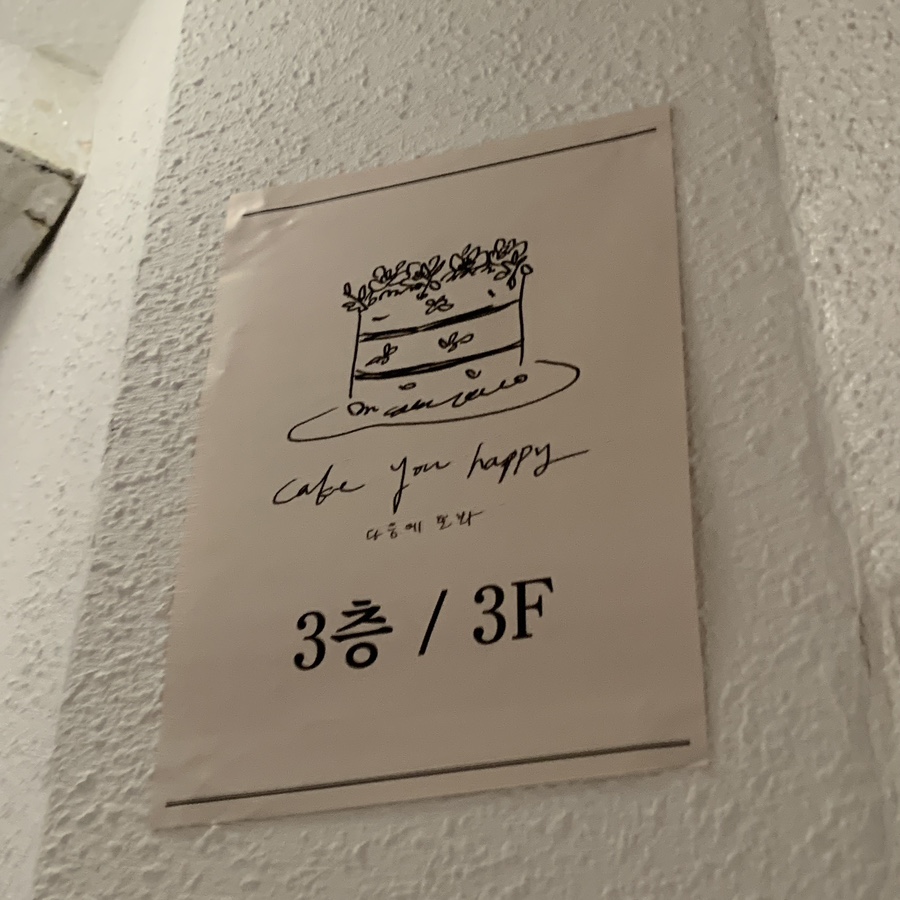 cake you happy
다음에 또 와
3층 / 3F